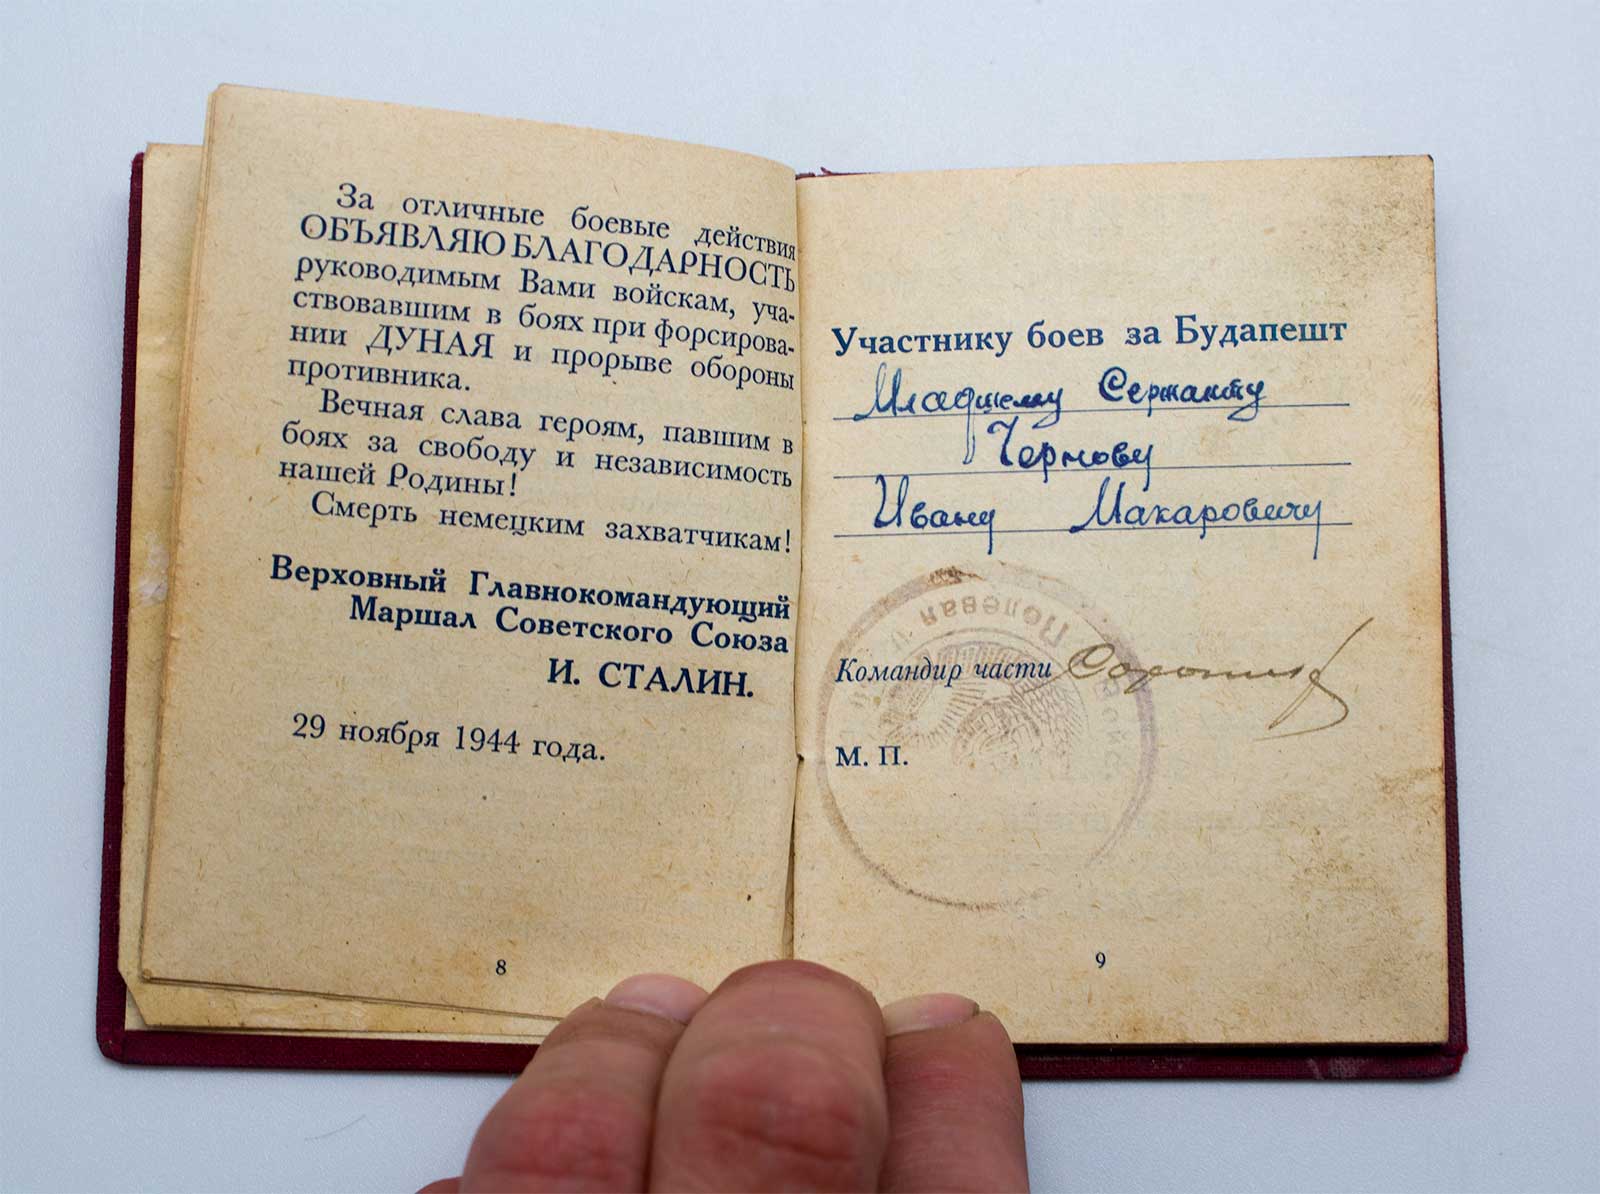 За отличные боевые действия
ОБЪЯВЛЯЮ БЛАГОДАРНОСТЬ
руководимым Вами войскам, уча-
ствовавшим в боях при форсирова-
нии ДУНАЯ и прорыве обороны
противника.
Вечная слава героям, павшим в
боях за свободу и независимость
нашей Родины!
Смерть немецким захватчикам!
Верховный Главнокомандующий
Маршал Советского Союза
И. СТАЛИН.
29 ноября 1944 года.
8
Участнику боев за Будапешт
Младшему Сержанту
Чернову
Ивану Макаровичу
Полевая
Командир части
М. П.
9